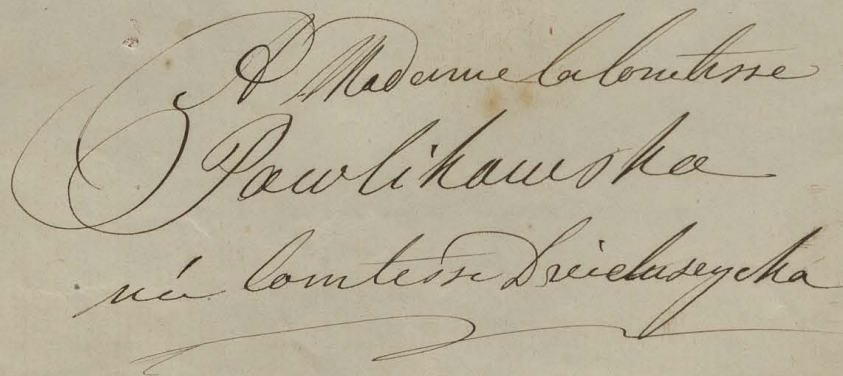 A Madame la Comtesse
Pawlikowska
née Comtesse Dzieduszycka